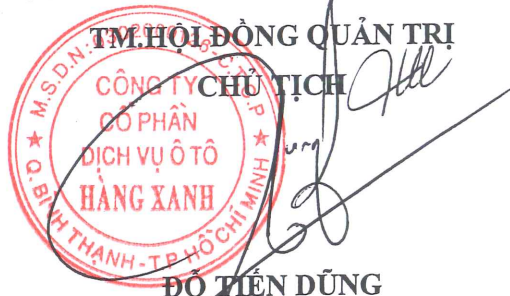 TM.HỘI ĐỒNG QUẢN TRỊ
CHỦ TỊCH
CÔNG TY
CỔ PHẦN
DỊCH VỤ Ô TÔ
HÀNG XANH
M.S.D.N:
C.T.C.P
Q. BÌNH THẠNH - T.P HỒ CHÍ MINH
ĐỖ TIẾN DŨNG